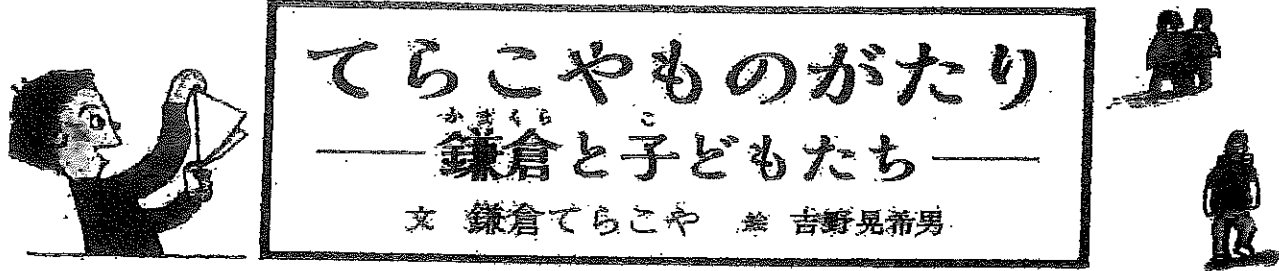 てらこやものがたり
かまくら こ
――鎌倉と子どもたち――
文 鎌倉てらこや 絵 吉野晃希男